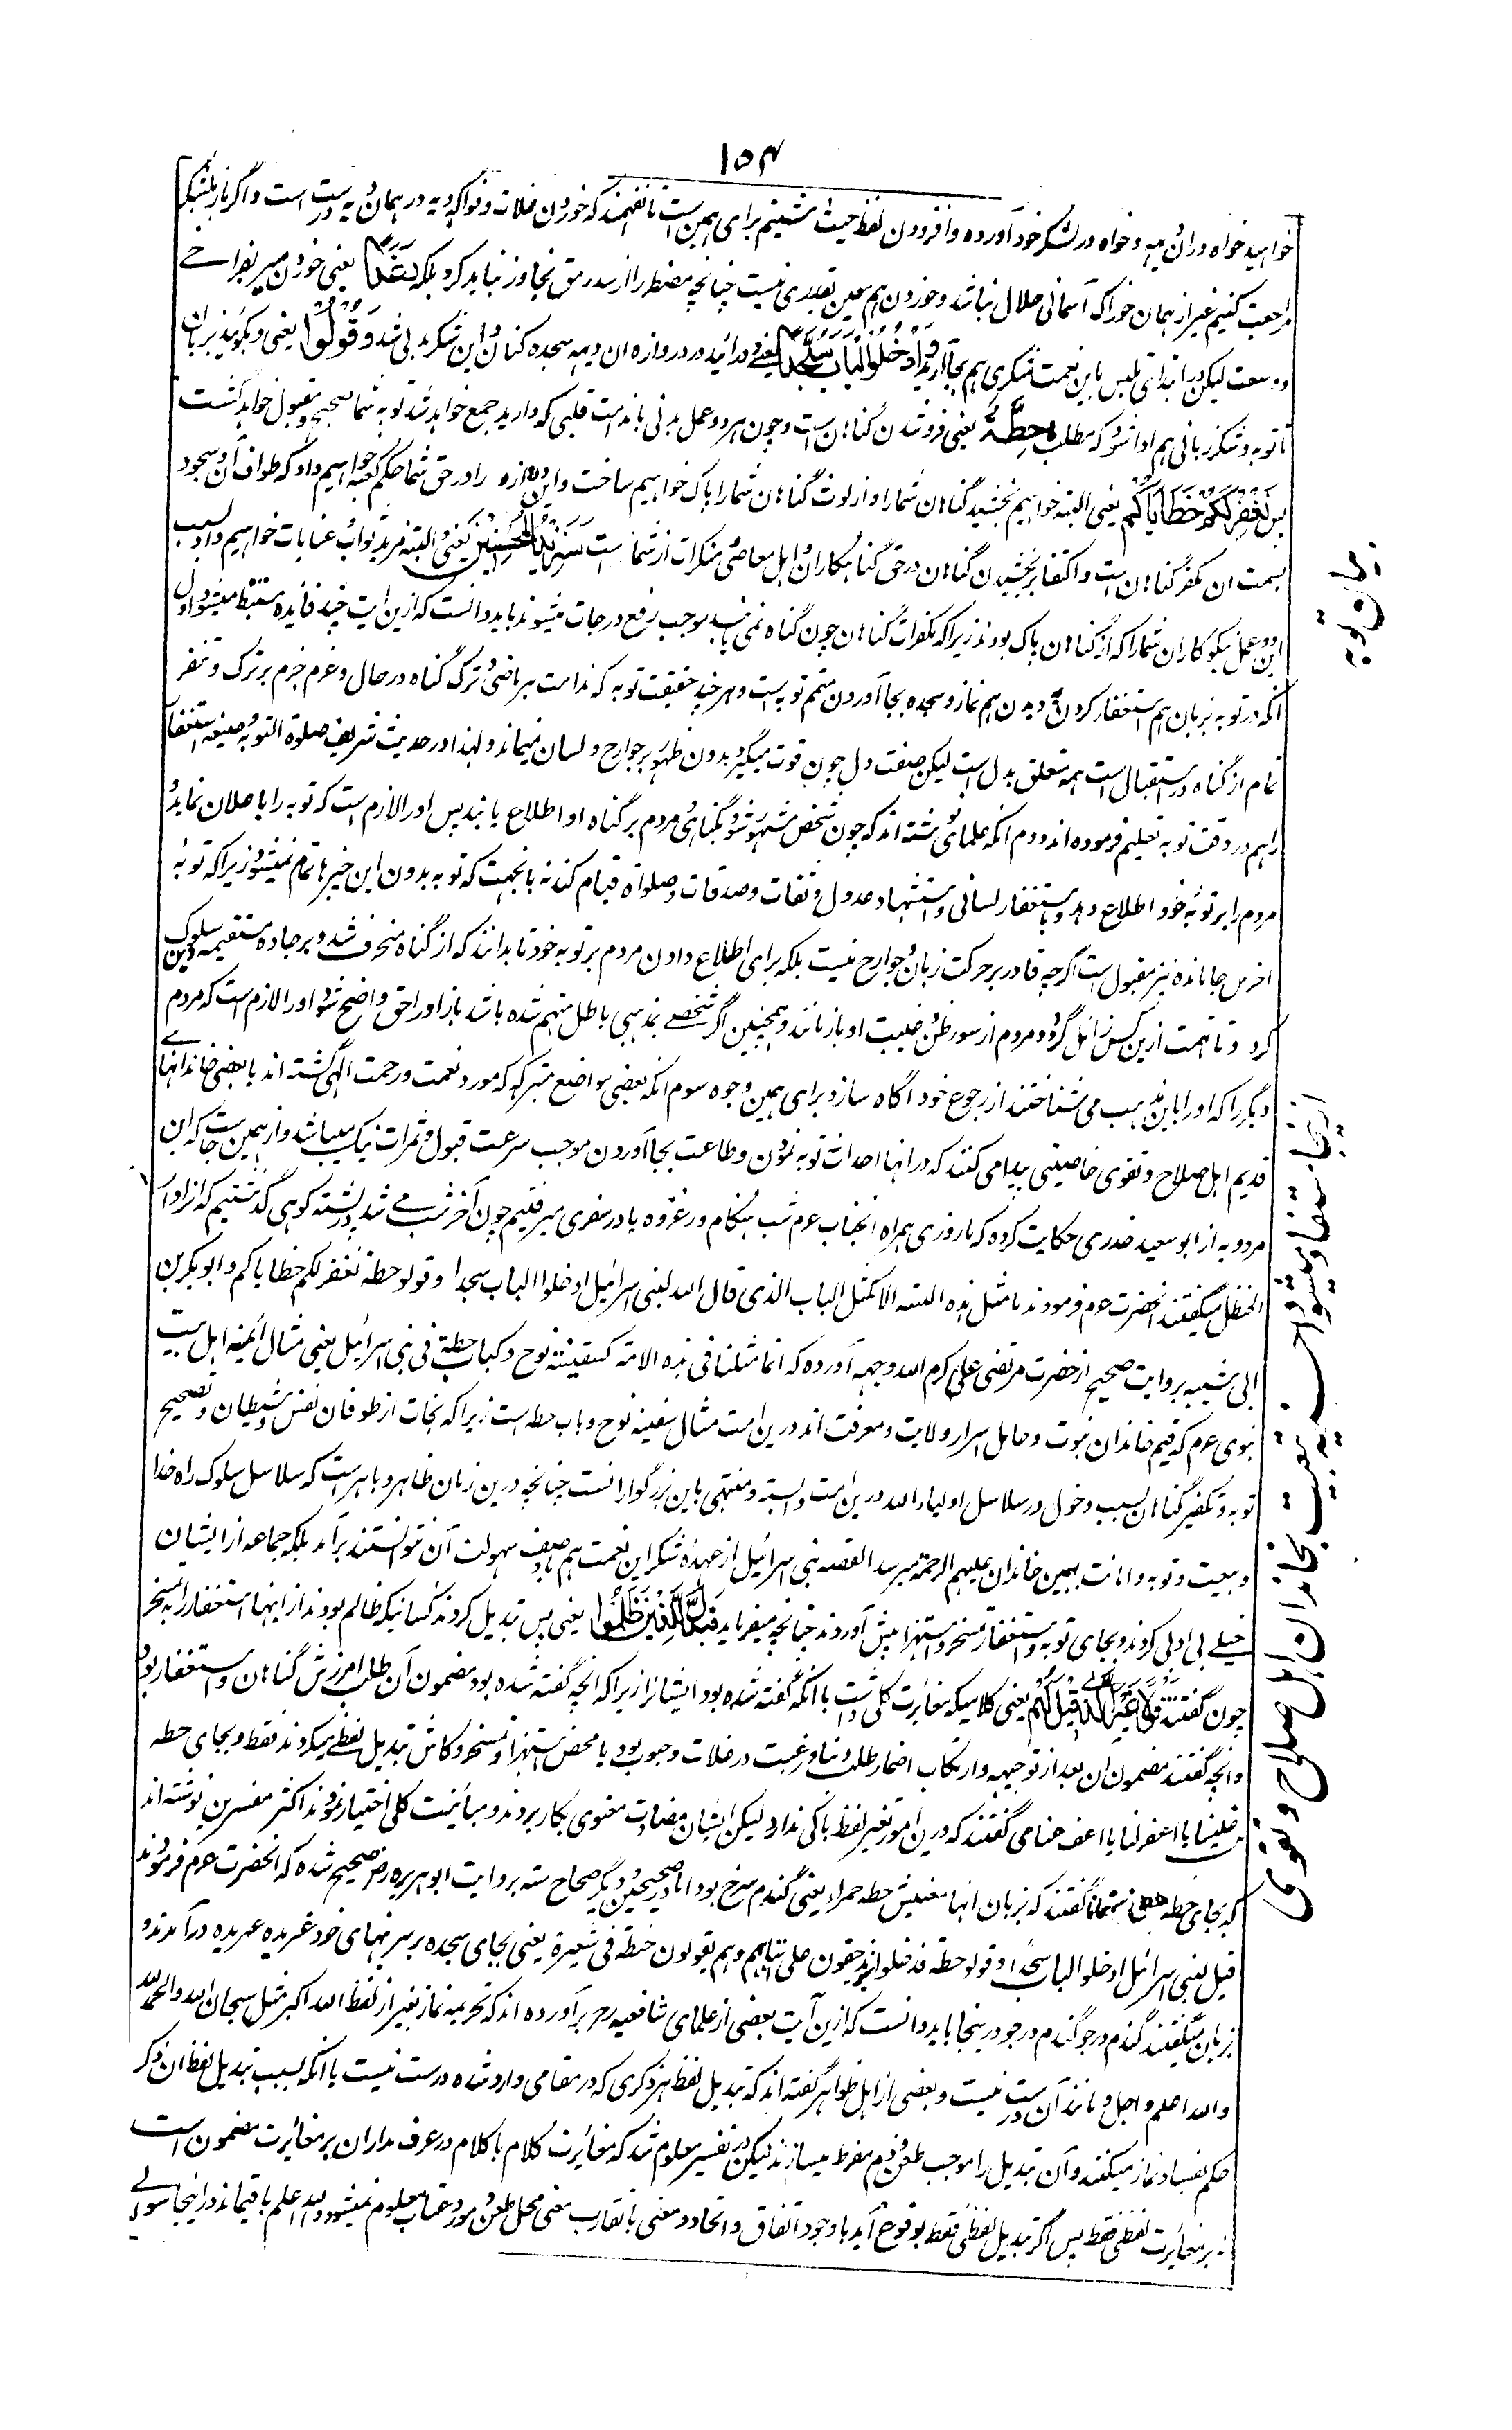 ۱۵۴
خواهید خواه در ان دیهه و خواه در لشکر خود آورده و افزودن لفظ حیث شئتم برای همین است تا نفهمند که خوردن غلات و فواکه دیه در همان دیه درست است و اگر باز بلشکر
مراجعت کنیم غیر از همان خوراک آسمانی حلال نباشد و خوردن هم معین بقدری نیست چنانچه مضطر را از سد رمق تجاوز نباید کرد بلکه رَغَدًا یعنی خوردن سیر بفراخی
و وسعت لیکن در ابتدای تلبس باین نعمت شکری هم بجا آرید وَادْخُلُوا الْبَابَ سُجَّدًا یعنی و در ائید در دروازه ان دیهه سجده کنان و این شکر بدنی شد وَقُولُوا یعنی و بگوئید بزبان
تا توبه و شکر زبانی هم ادا شود که مطلب ما حِطَّةٌ یعنی فروشدن گناهان است و چون هر دو عمل بدنی باندامت قلبی که دارید جمع خواهد شد توبه شما صحیح و مقبول خواهد گشت
پس نَغْفِرْ لَكُمْ خَطَايَاكُمْ یعنی البته خواهیم بخشید گناهان شما را و از لوث گناهان شما را پاک خواهیم ساخت و این دروازه را در حق شما حکم کعبه خواهیم داد که طواف آن و سجود
بسمت ان مکفر گناهان است و اکتفا بر بخشیدن گناهان در حق گناهکاران و اهل معاصی و منکرات از شما است وَسَنَزِيدُ الْمُحْسِنِينَ یعنی و البته مزید ثواب و عنایات خواهیم داد بسبب
این دو عمل نیکوکاران شما را که از گناهان پاک بودند زیرا که مکفرات گناهان چون گناه نمی یابند موجب رفع درجات میشوند باید دانست که ازین ایت چند فائده مستنبط میشود اول
انکه در توبه بزبان هم استغفار کردن و بدن هم نماز و سجده بجا آوردن متمم توبه است و هر چند حقیقت توبه که ندامت بر ماضی و ترک گناه در حال و عزم جزم بر ترک و تنفر
تمام از گناه در استقبال است همه متعلق بدل است لیکن صفت دل چون قوت میگیرد بدون ظهور بر جوارح و لسان نمیماند و لهذا در حدیث شریف صلوة التوبه و صیغه استغفار
را هم در وقت توبه تعلیم فرموده اند دوم انکه علمای نوشته اند که چون شخص مشهور شود بگناهی و مردم بر گناه او اطلاع یابند پس او را لازم است که توبه را با علان نماید و
مردم را بر توبۂ خود اطلاع دهد و باستغفار لسانی و استشهاد عدول و ثقات و صدقات و صلواة قیام کند نه بانجهت که توبه بدون این چیزها تمام نمیشود زیرا که توبۂ
اخرس بجا مانده نیز مقبول است اگر چه قادر بر حرکت زبان و جوارح نیست بلکه برای اطلاع دادن مردم بر توبه خود تا بدانند که از گناه منحرف شد و بر جاده مستقیمه دین سلوک
کرد و تا تهمت ازین کس زائل گردد و مردم از سوء ظن و غیبت او باز مانند و همچنین اگر شخصے بمذهبی باطل متهم شده باشد باز او را حق واضح شود او را لازم است که مردم
دیگر را که او را باین مذهب می شناختند از رجوع خود اگاه سازد برای همین وجوه سوم انکه بعضی مواضع متبرکه که مورد نعمت و رحمت الٰهی گشته اند یا بعضی خاندانهاے
قدیم اهل صلاح و تقوی خاصیتی پیدا می کنند که در انها احداث توبه نمودن و طاعت بجا آوردن موجب سرعت قبول و ثمرات نیک میباشد و از همین جاست که ابن
مردویه از ابو سعید خدری حکایت کرده که ما روزی همراه انجناب عوم شب هنگام در غزوه یا در سفری میرفتیم چون آخر شب مے شد از پشته کوهی گذشتیم که انرا ذات
الحنظل میگفتند انحضرت عوم فرمودند ما مثل هذه الثنیه الا کمثل الباب الذی قال الله لبنی اسرائیل ادخلوا الباب سجدا و قولوا حطة نغفر لکم خطایاکم و ابو بکر بن
ابی شیبه بروایت صحیح از حضرت مرتضی علی کرم الله وجهه آورده که انما مثلنا فی هذه الامة کسفینة نوح و کباب حطة فی بنی اسرائیل یعنی مثال ائمه اهل بیت
نبوی عوم که قیم خاندان نبوت و حامل اسرار ولایت و معرفت اند درین امت مثال سفینه نوح و باب حطه است زیرا که نجات از طوفان نفس و شیطان و تصحیح
توبه و تکفیر گناهان بسبب دخول در سلاسل اولیاء الله درین امت وابسته و منتهی باین بزرگوارانست چنانچه درین زمان ظاهر و باهر است که سلاسل سلوک راه خدا
و بیعت و توبه و انابت بهمین خاندان علیهم الرحمة میرسد القصه بنی اسرائیل از عهدۂ شکر این نعمت هم با وصف سهولت آن نتوانستند بر آمد بلکه جماعه از ایشان
خیلے بی ادبی کردند و بجای توبه و استغفار تمسخر و استهزا پیش آوردند چنانچه میفرماید فَبَدَّلَ الَّذِينَ ظَلَمُوا یعنی پس تبدیل کردند کسانیکه ظالم بودند از اینها استغفار را به تمسخر
چون گفتند قَوْلًا غَيْرَ الَّذِي قِيلَ لَهُمْ یعنی کلامیکه مغائرت کلی داشت با انکه گفته شده بود ایشانرا زیرا که انچه گفته شده بود مضمون آن طلب امرزش گناهان و استغفار بود
و انچه گفتند مضمون ان بعد از توجیهه و ارتکاب اضمار طلب دنیا و رغبت در غلات و حبوب بود یا محض استهزا و تمسخر و کاش تبدیل لفظے میکردند فقط و بجای حطه
خطینا یا اغفر لنا یا اعف عنا می گفتند که درین امور تغیر لفظ باکی ندارد لیکن ایشان مضادت معنوی بکار بردند و مباینت کلی اختیار نمودند اکثر مفسرین نوشته اند
که بجای حطه گفتند که بزبان انها معنیش حطه حمراء یعنی گندم سرخ بود اما در صحیحین و دیگر صحاح سته بروایت ابو هریره رض صحیح شده که انحضرت عوم فرمودند
قیل لبنی اسرائیل ادخلوا الباب سجدا و قولوا حطة فدخلوا یزحفون علی استاههم و هم یقولون حنطة فی شعیرة یعنی بجای سجده بر سرینهای خود غریده غریده در آمدند و
بزبان میگفتند گندم در جو گندم در جو درینجا باید دانست که ازین آیت بعضی از علمای شافعیه رح بر آورده اند که تحریمه نماز بغیر از لفظ الله اکبر مثل سبحان الله و الحمد لله
و الله اعلم و اجل و مانند آن درست نیست و بعضی از اهل ظواهر گفته اند که تبدیل لفظ هر ذکری که در مقامی وارد شده درست نیست با انکه بسبب تبدیل لفظ ان ذکر
حکم بفساد نماز میکنند و آن تبدیل را موجب طعن و ذم مفرط میسازند لیکن در تفسیر معلوم شد که مغائرت کلام با کلام در عرف مدار ان بر مغائرت مضمون است
نه بر مغائرت لفظی فقط پس اگر تبدیل لفظی فقط بوقوع آید با وجود اتفاق و اتحاد و معنی یا تقارب معنی محل طعن و مورد عتاب معلوم نمیشود و الله اعلم باقیماند در اینجا سوالے
بیان توبه
از اینجا مستفاد میشود بیعت بخاندان اهل صلاح و تقوی